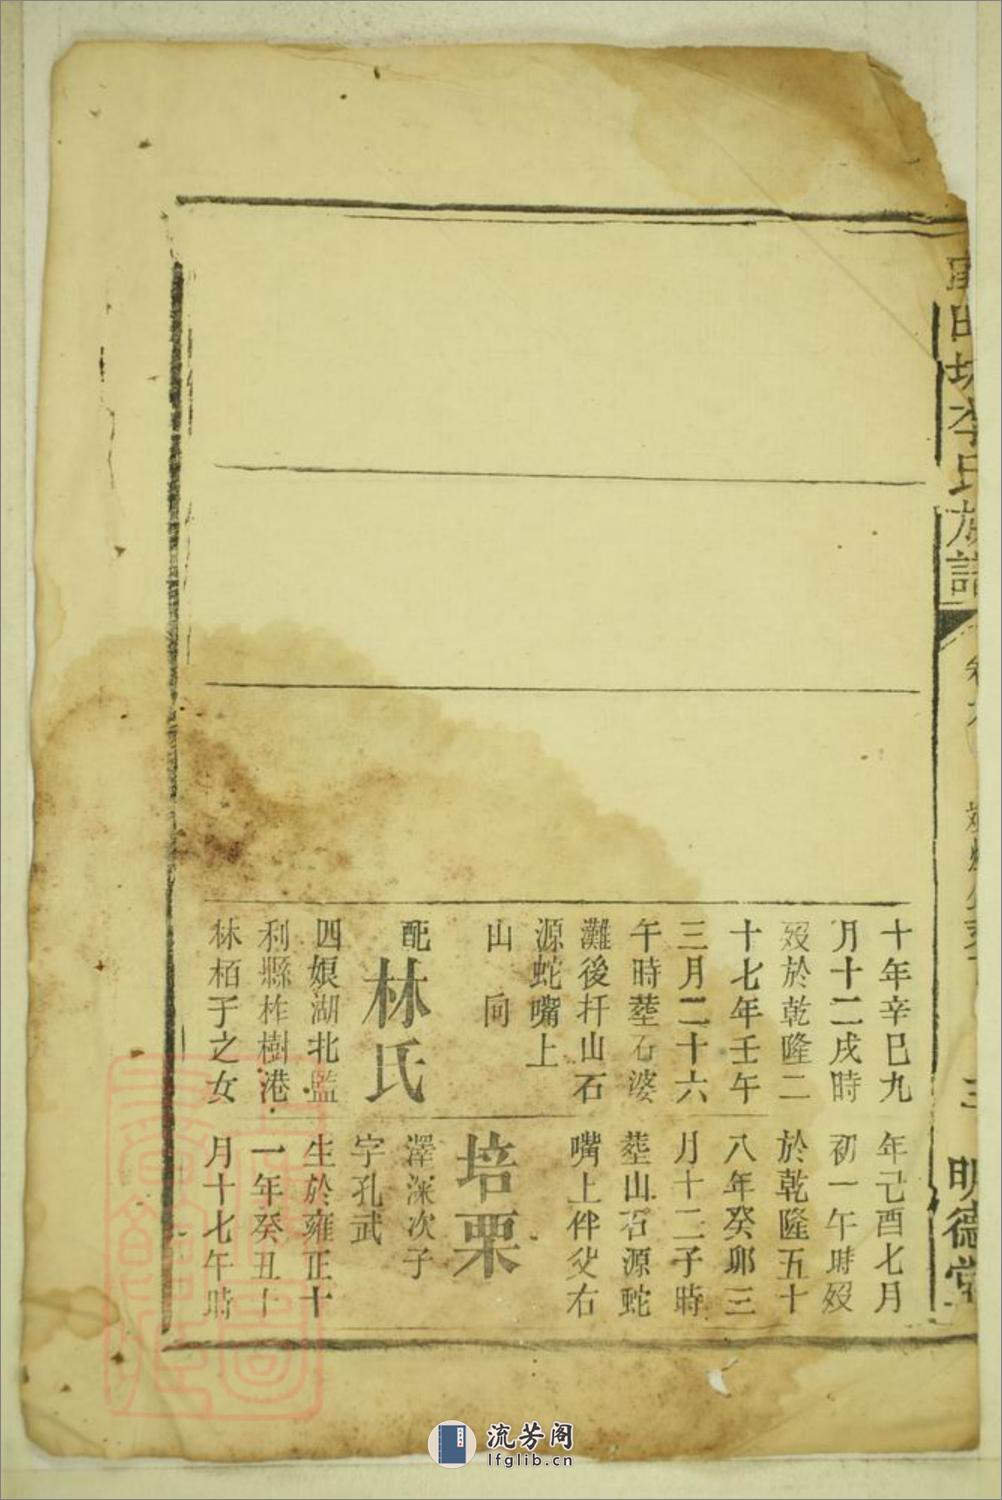 田
李氏族譜
三
明德堂
十年辛巳九
月十二戌時
歿於乾隆二
十七年壬午
三月二十六
午時塟石婆
灘後扦山石
源蛇嘴上
山 向
配林氏
四娘湖北監
利縣柞樹港
林栢于之女
年己酉七月
初一午時歿
於乾隆五十
八年癸卯三
月十二子時
塟山石源蛇
嘴上伴父右
培栗
澤深次子
字孔武
生於雍正十
一年癸丑十
月十七午時
流芳阁
lfglib.cn